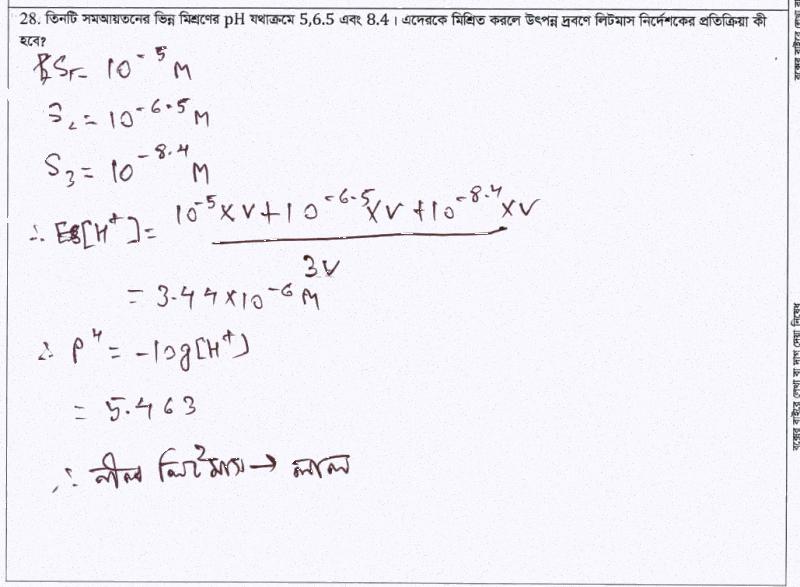 28. তিনটি সমআয়তনের ভিন্ন মিশ্রণের pH যথাক্রমে 5,6.5 এবং 8.4। এদেরকে মিশ্রিত করলে উৎপন্ন দ্রবণে লিটমাস নির্দেশকের প্রতিক্রিয়া কী
হবে?
S₁= 10⁻⁵ M
S₂= 10⁻⁶·⁵ M
S₃= 10⁻⁸·⁴ M
∴ [H⁺]= 10⁻⁵XV+10⁻⁶·⁵XV+10⁻⁸·⁴XV
3V
= 3.44x10⁻⁶ M
∴ pᴴ = -log[H⁺]
= 5.463
∴ নীল লিটমাস → লাল